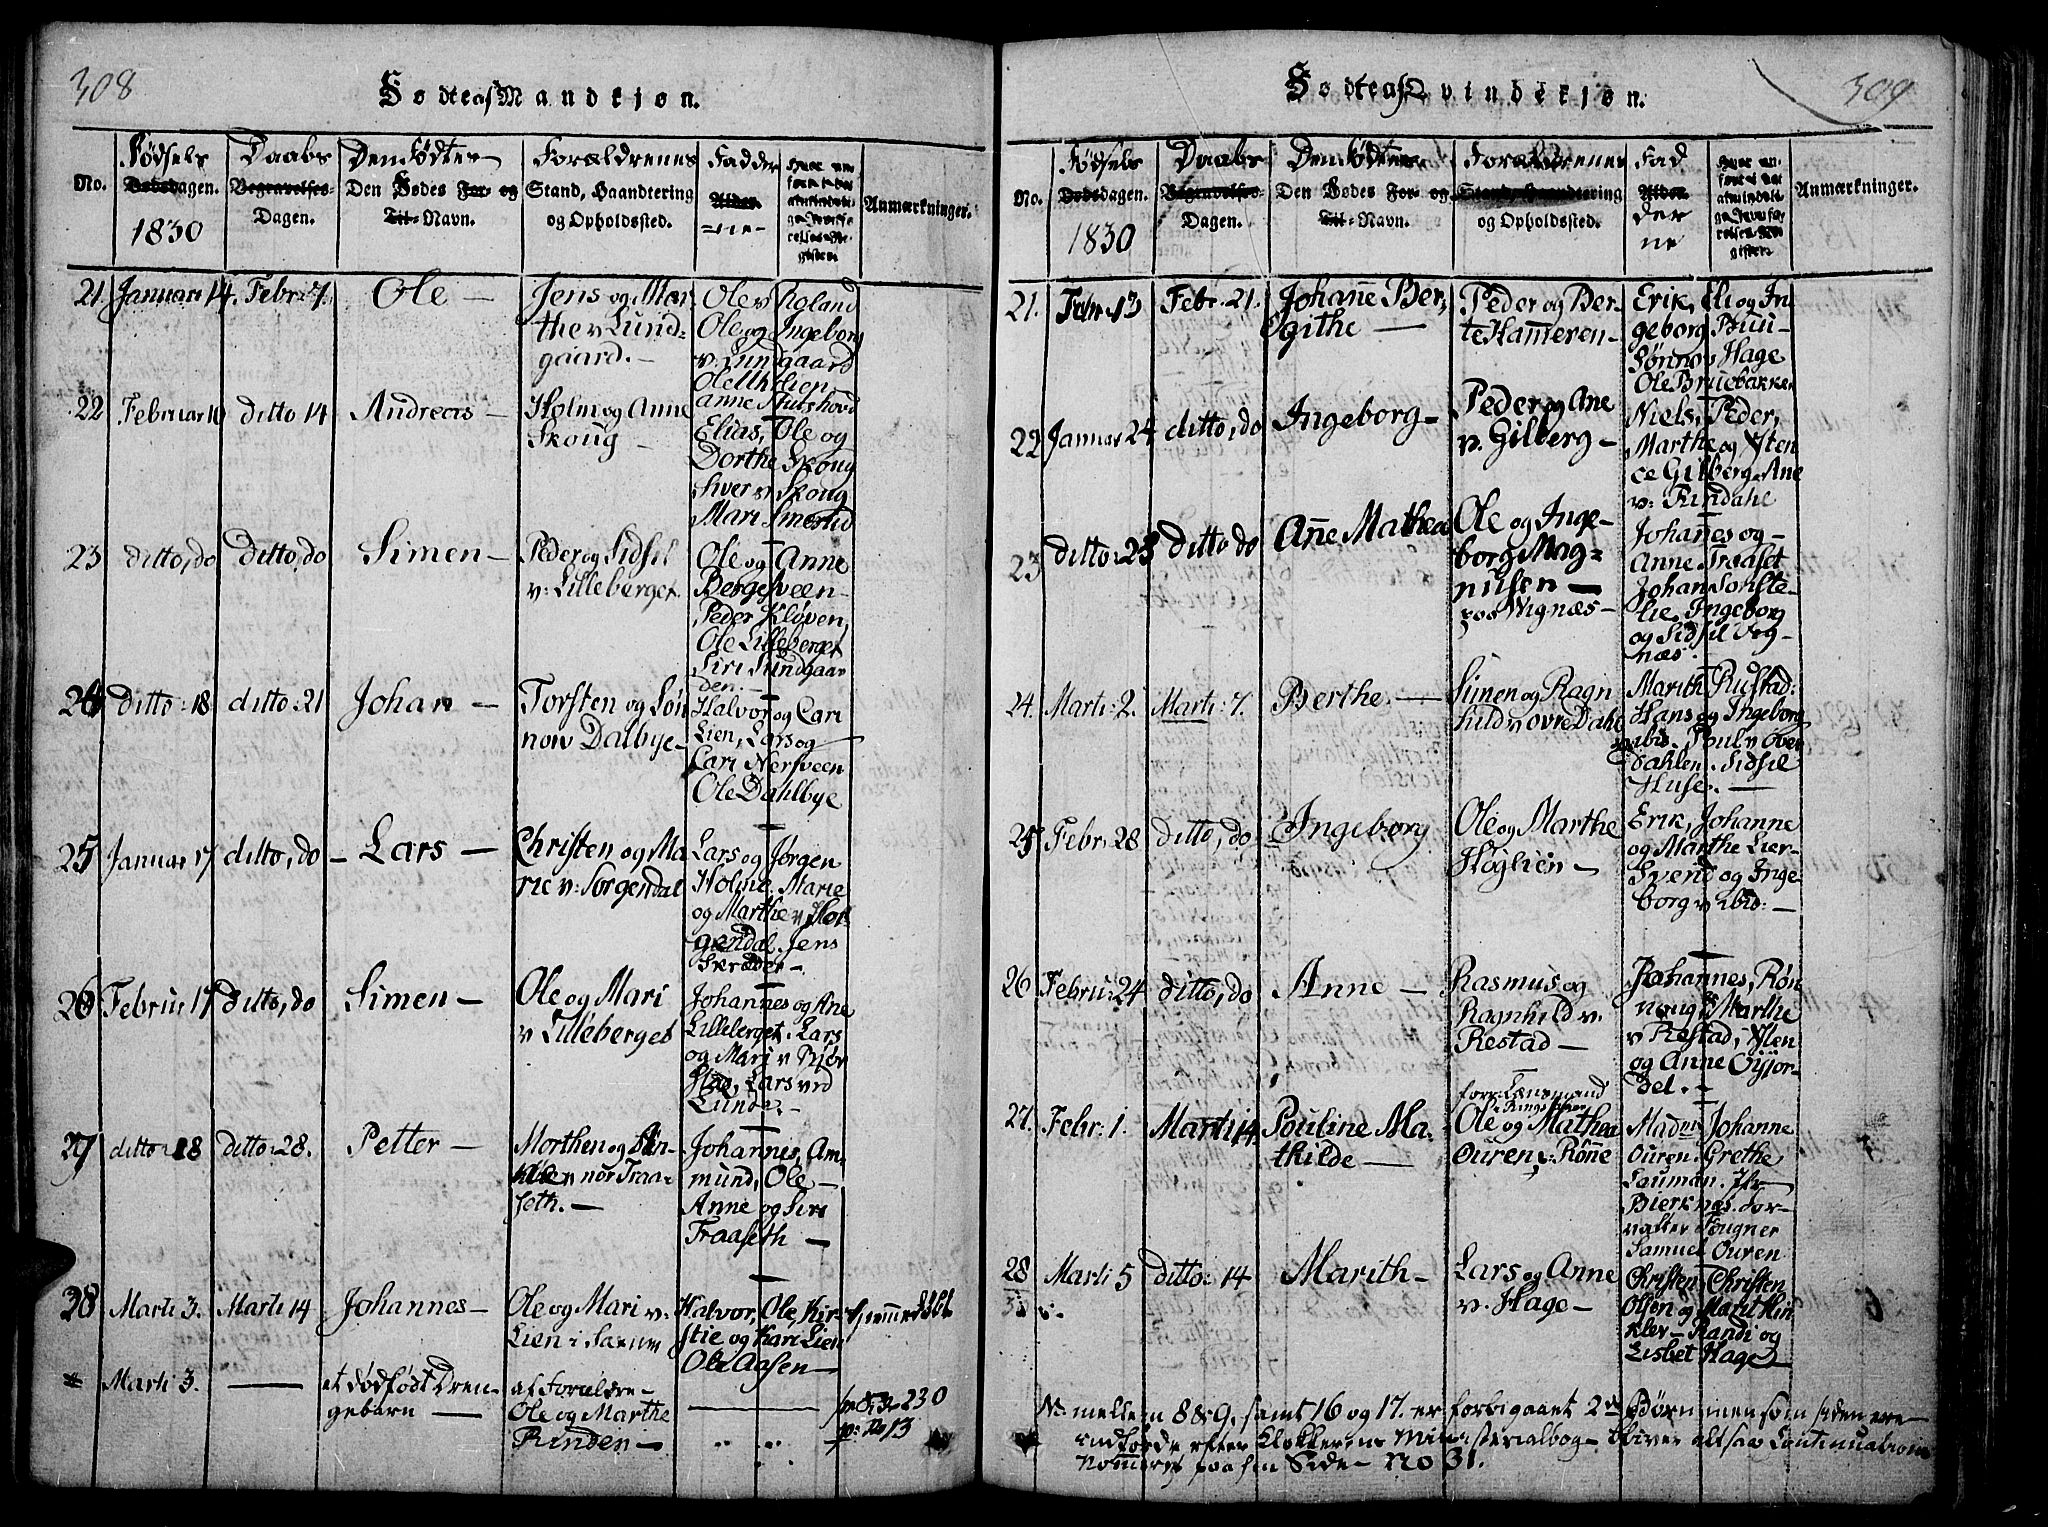 308
Fødte af Mandkiøn.
No.
Fødsels
Dødsdagen.
1830
Daabs
Begravelses-
Dagen.
Den Fødtes
Den Dødes For- og
Til-Navn.
Forældrenes
Stand, Haandtering
og Opholdssted.
Fadder
Alder
-ne-
Anmærkninger.
21. Januari 14. Febr: 7. Ole —
Jens og Mar-
the v Lund-
gaard. —
Ole v Roland
Ole og Ingeborg
v. Lundgaard
Ole Uhlien
22 Februar 10 ditto 14 Andreas —
Holm og Anne
Skoug —
Elias, Ole og
Dorthe Skoug
Iver v Skoug
Mari
23 ditto, do ditto, do Simen —
Peder og Sidsil
v: Lilleberget
Ole og Anne
Bergesveen —
Peder Kløven,
Ole Lilleberget
Siri Lundgaar
den. —
24 ditto: 18 ditto: 21 Johan —
Torsten og Søn
nov Dalbye —
Halvor og Cari
Lien, Lars og
Cari Nersveen
Ole Dahlbye
25 Januar 17 ditto, do — Lars —
Christen og Ma
rie v: Sorgendal
Lars og Jørgen
Holme, Marie
og Marthe v Sor
gendal. Jens
Skræder —
26 Februar 17 ditto, do Simen —
Ole og Mari
v Lilleberget
Johannes og Ane
Lilleberget. Lars
og Mari v
Lars ved
Lunde. —
27 ditto 18 ditto: 28. Petter —
Morthen og
nor Traa-
seth. —
Johannes, Am-
mund, Ole —
Anne og Siri
Traaseth —
28 Marti 3. Marti 14 Johannes —
Ole og Mari v.
Lien i
Halvor, Ole, Kir-
stie og Kari Lien
Ole Aasen —
Hjemmedøbt
Marti 3. — et dødfødt Dren-
gebarn —
af Forældre —
Ole og Marthe
Rinden —
230
13
309
Fødte af Qvindekiøn.
No.
Fødsels
Dødsdagen.
1830
Daabs
Begravelses-
Dagen.
Den Fødtes
Den Dødes For- og
Til-Navn.
Forældrenes
Stand, Haandtering
og Opholdssted.
Fad
Alder
der
ne
Anmærkninger.
21. Febr: 13 Febr: 21. Johanne Ber,
githe —
Peder og Ber-
te Hameren —
Erik, Eli og In
geborg
Hage
Ole Bruebakken
22 Januar 24 ditto, do Ingeborg —
Peder og Ane
v. Gilberg —
Niels, Peder,
Marthe og
Gilberg. Ane
v: Rindahl
23 ditto: 28 ditto do Anne Mathea
Ole og Inge-
borg Mag-
nusen —
paa Vignæs —
Johannes og —
Anne Traaset
Johan
lie, Ingeborg
og Sidsil Vig-
næs.
24. Marti: 2. Marti: 7. Berthe. —
Simen og Ragn
hild v øvre Dahl
Marith Rustad:
Hans og Ingeborg
ibid. Poul v Øver
Dahlen. Sidsil
Huse. —
25 Febr: 28 ditto, do Ingeborg
Ole og Marthe
Høglien —
Erik, Johanne
og Marthe Lier —
Svend og Inge-
borg v ibid: —
26 Februi: 24 ditto, do Anne —
Rasmus og
Ragnhild v.
Restad —
Johannes, Røn
noug, Marthe
v Restad,
og Anne
del. —
27. Febr: 1. Marti 14 Pouline Ma-
thilde —
forr: Lensmand
Ole og Mathea
Ouren, v: Rönne
Madme Johanne
Ouren. Grethe
Lauman.
Fougner
Samuel Ouren
28 Marti 5 ditto: 14 Marith —
Lars og Anne
v. Hage —
Christen Christen
Olsen og Marit Hin
klev — Randi og
Lisbet Hage
NB mellem 8 & 9, samt 16 og 17. er forbigaaet 2de Børn, men som siden ere
indførde efter Klokkerens Ministerialbog — bliver altsaa Continuations
Nommeret paa sin Side — No 31.